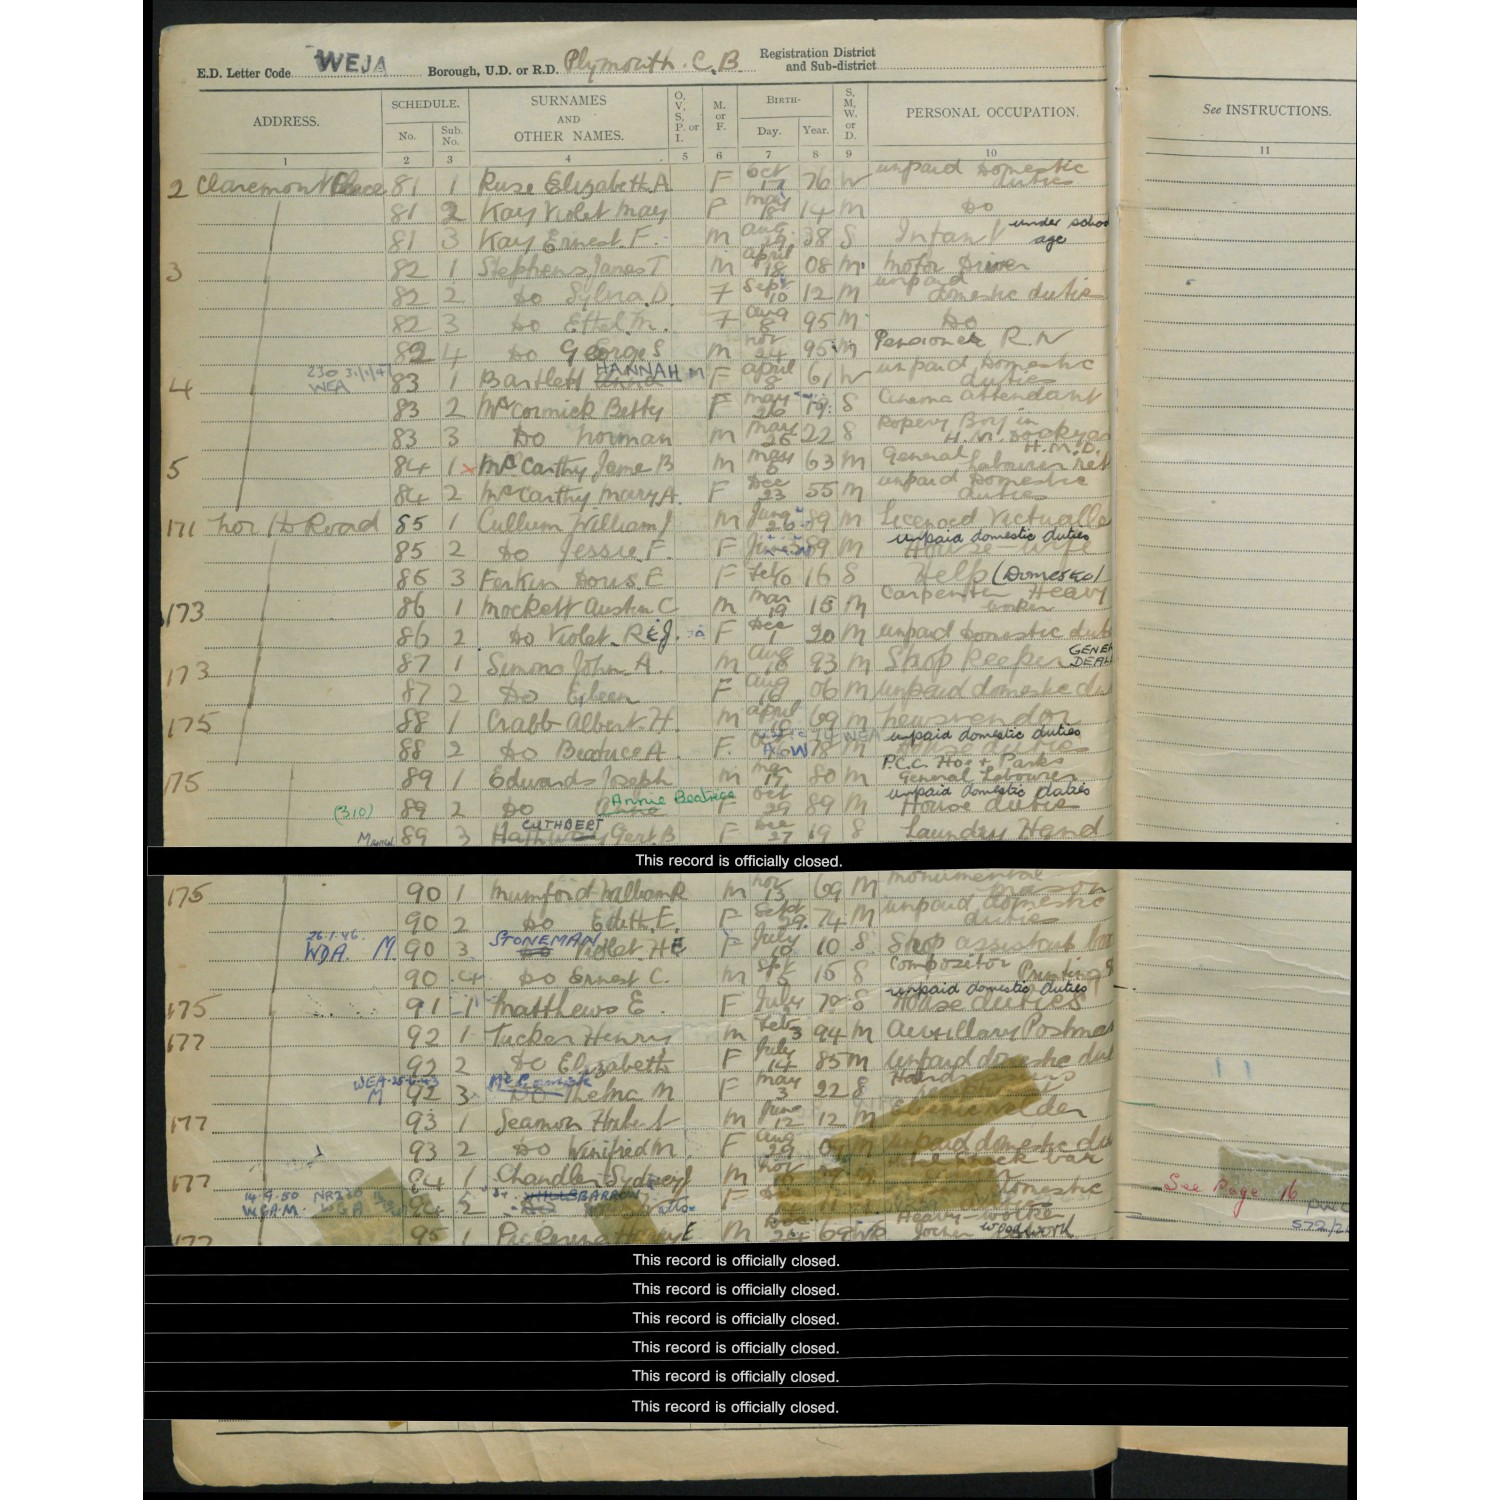 E.D. Letter Code WEJA Borough, U.D. or R.D. Plymouth C.B. Registration District and Sub-district
ADDRESS. SCHEDULE. No. Sub. No. SURNAMES AND OTHER NAMES. O, V, S, P, or I. M. or F. BIRTH- Day. Year. S, M, W, or D. PERSONAL OCCUPATION. See INSTRUCTIONS.
1 2 3 4 5 6 7 8 9 10 11
2 Claremont Place 81 1 Ruse Elizabeth A F Oct 17 76 W unpaid Domestic duties
81 2 Kay Violet May F May 18 14 M Do
81 3 Kay Ernest F. M Aug 29 38 S Infant under school age
3 82 1 Stephens James T M April 18 08 M Motor Driver
82 2 Do Sylvia D. F Sept 10 12 M unpaid domestic duties
82 3 Do Ethel M. F Aug 8 95 M Do
82 4 Do George S M Nov 24 95 M Pensioner R.N
230 WEA
4 83 1 Bartlett HANNAH M F April 8 61 W unpaid Domestic duties
83 2 McCormick Betty F May 26 19 S Cinema attendant
83 3 Do Norman M May 26 22 S Ropery Boy in H.M. Dockyard
5 84 1 McCarthy Jame B M May 6 63 M General Labourer H.M.D. Ret
84 2 McCarthy Mary A. F Dec 23 55 M unpaid Domestic duties
171 North Road 85 1 Cullum William J M June 26 89 M Licenced Victualle
85 2 Do Jessie F. F 89 M unpaid domestic duties House-wife
85 3 Ferkin Doris E F Feb 16 S Help (Domestic)
173 86 1 Mockett Austin C M Mar 19 15 M Carpenter Heavy worker
86 2 Do Violet R F Dec 1 20 M unpaid Domestic dut
173 87 1 Simons John A. M Aug 18 93 M Shop Keeper GENE DEAL
87 2 Do Eileen F Aug 16 06 M unpaid domestic du
175 88 1 Crabb Albert H. M April 69 M Newsvendor
88 2 Do Beatrice A. F. 78 M unpaid domestic duties House duties
175 89 1 Edwards Joseph M Mar 17 80 M P.C.C. Hoe + Parks General Labourer
(310) 89 2 Do Annie Beatrice F Oct 29 89 M unpaid domestic duties House duties
89 3 CUTHBERT Gert B F Dec 27 19 S Laundry Hand
This record is officially closed.
175 90 1 Mumford William R M Nov 13 69 M Monumental Mason
90 2 Do Edith E. F Sept 29 74 M unpaid domestic duties
26.1.46. WDA. M. 90 3 STONEMAN Violet H E F July 10 10 S Shop assistant
90 4 Do Ernest C. M 15 S Compositor Printing
175 91 1 Matthews E. F July 70 S unpaid domestic duties House duties
177 92 1 Tucker Henry M Feb 3 94 M Auxillary Postman
92 2 Do Elizabeth F July 14 85 M unpaid domestic dut
WEA M 92 3 Do Thelma M F May 3 22 S
177 93 1 Seamon Hubert M June 12 12 M
93 2 Do Winifred M. F Aug 29 M unpaid domestic du
177 94 1 Chandler Sydney J M Nov
14.9.50 NR230 94 2 HILLSBARROW F domestic
See Page 16
177 95 1 Pickering E M 24 69 Heavy-worker Joiner woodwork
This record is officially closed.
This record is officially closed.
This record is officially closed.
This record is officially closed.
This record is officially closed.
This record is officially closed.